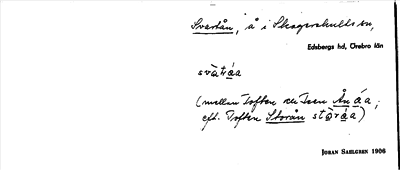 Svartån, å i Skagershults sn,
Edsbergs hd, Örebro län
svàtráa
(mellan Toften och Teen Ån áa,
eft. Toften Storån stòráa)
JOHAN SAHLGREN 1906